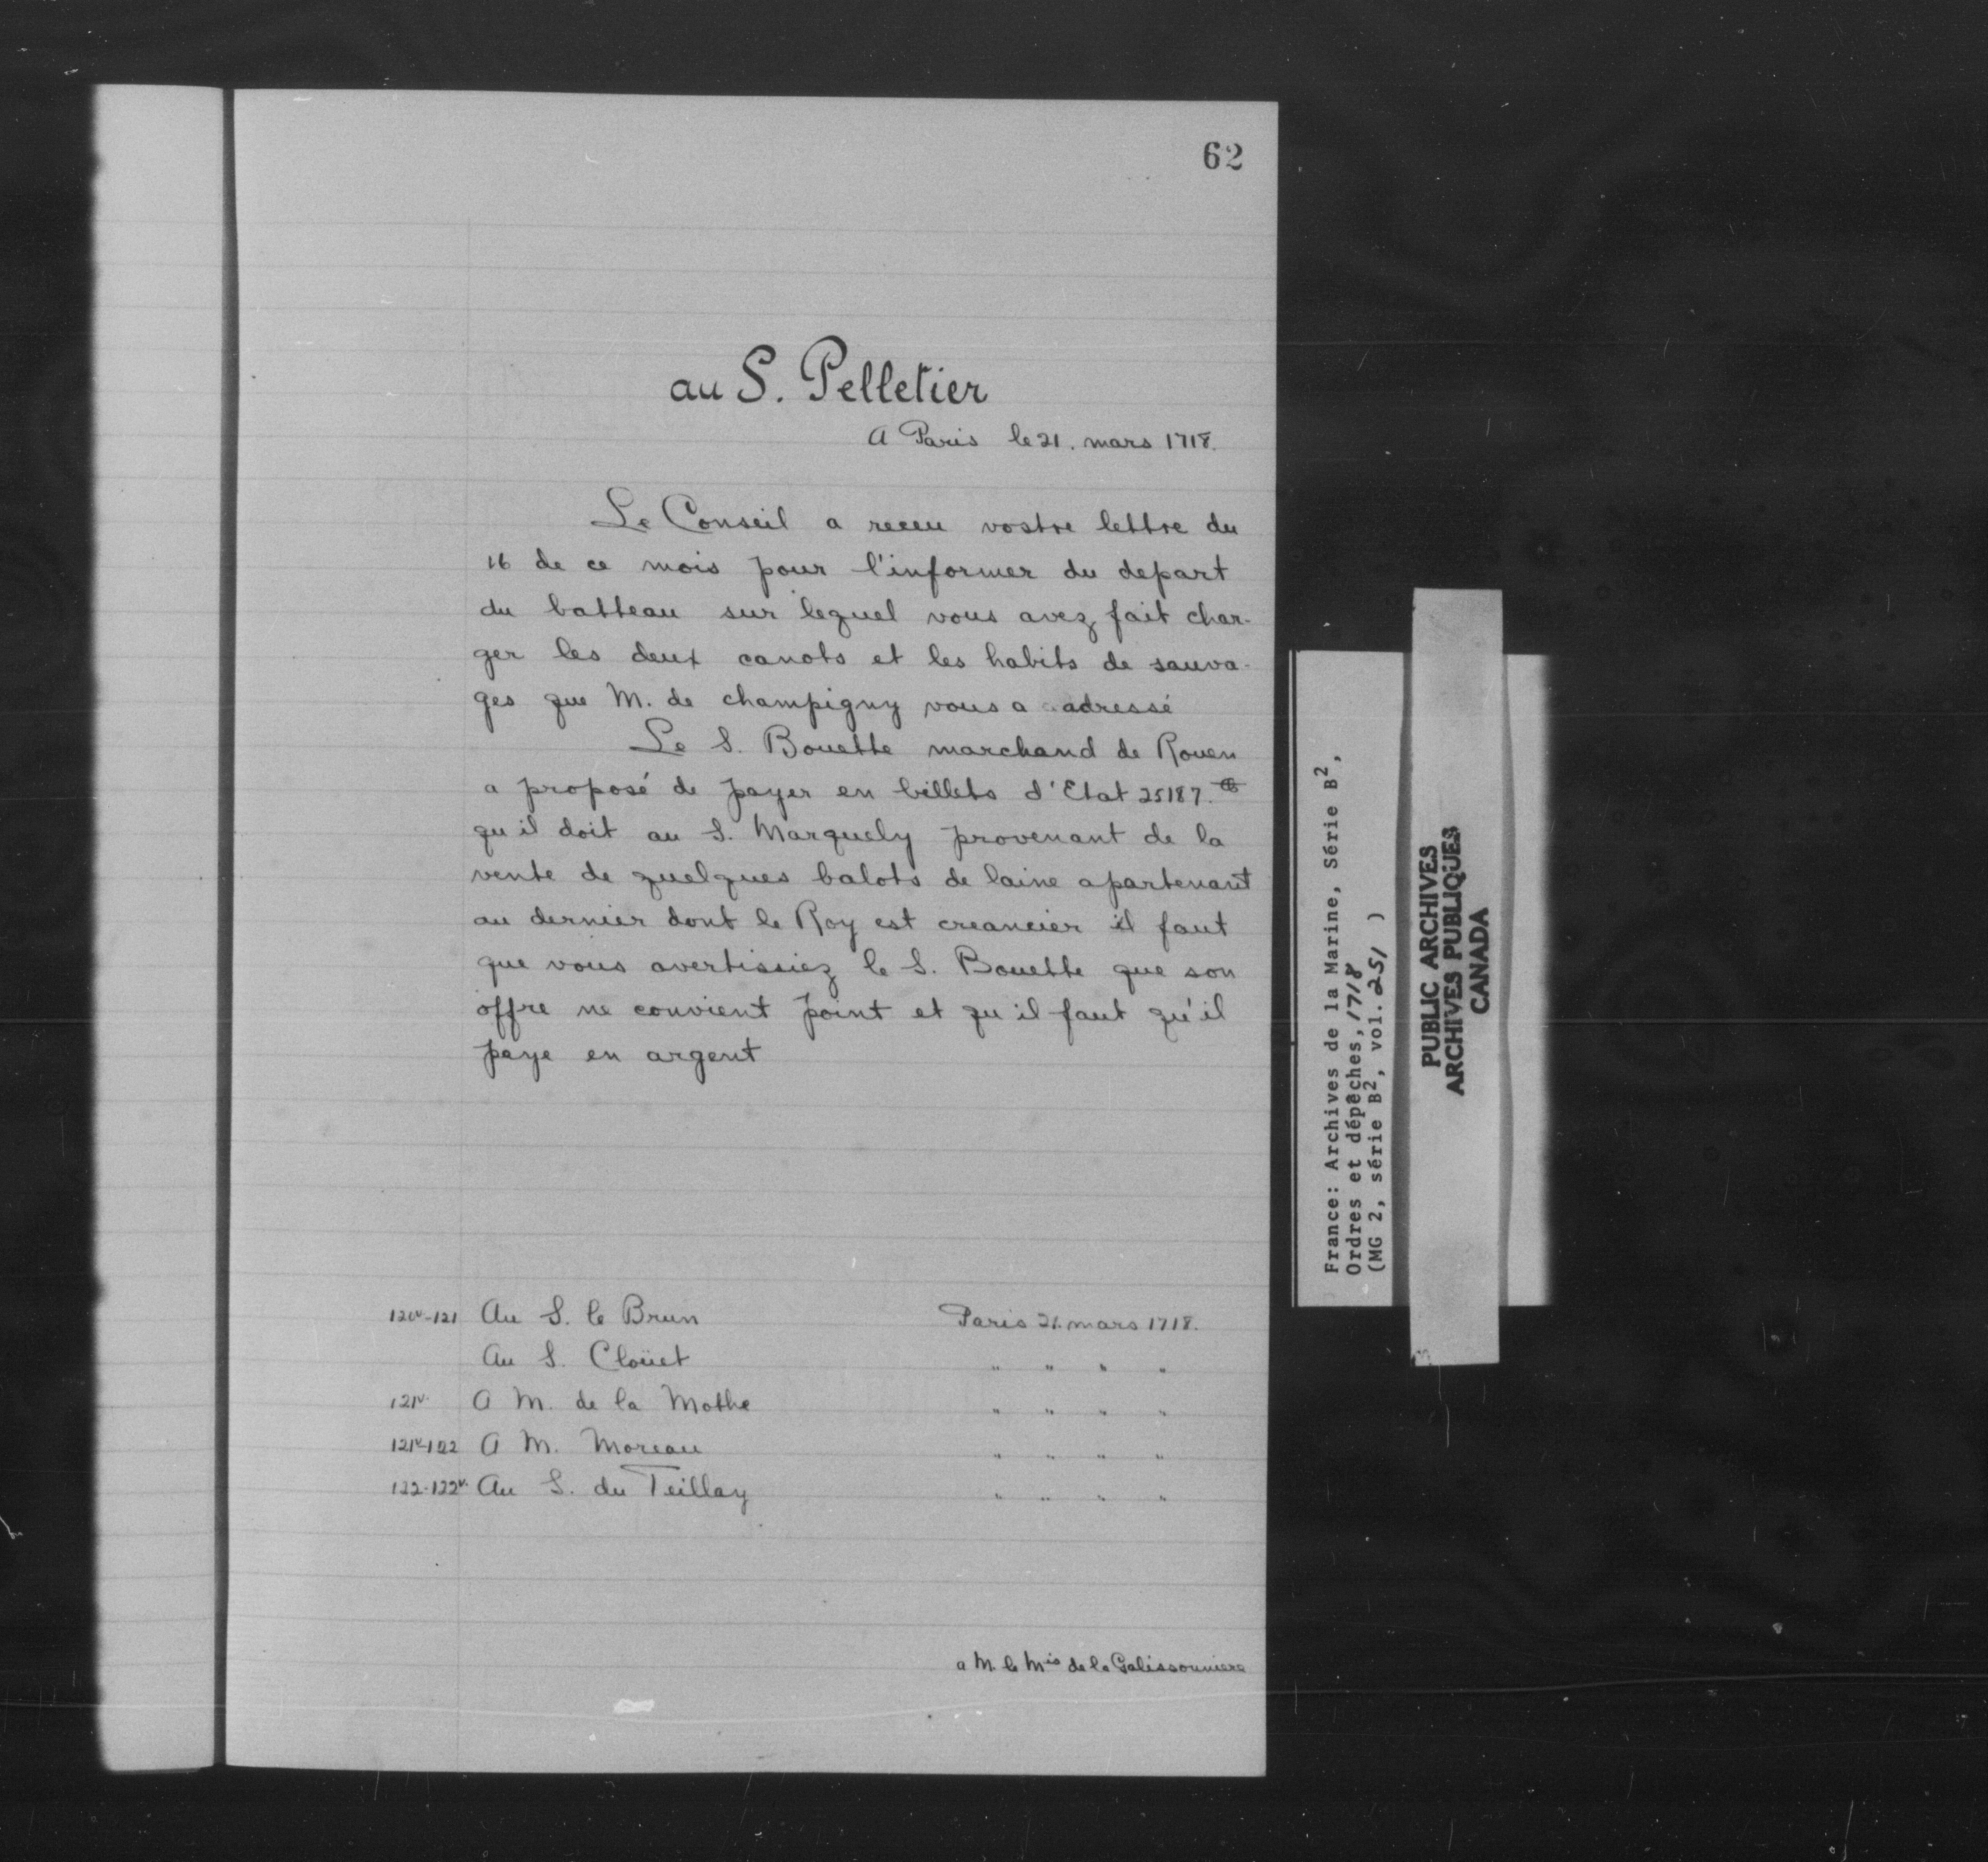 62
au S. Pelletier
A Paris le 21. mars 1718.
Le Conseil a receu vostre lettre du
16 de ce mois pour l'informer du depart
du batteau sur lequel vous avez fait char-
ger les deux canots et les habits de sauva-
ges que M. de champigny vous a adressé
Le S. Bouette marchand de Rouen
a proposé de payer en billets d'Etat 25187.
qu il doit au S. Marquely provenant de la
vente de quelques balots de laine apartenant
au dernier dont le Roy est creancier il faut
que vous avertissiez le S. Bouette que son
offre ne convient point et qu il faut qu'il
paye en argent
120v-121 Au S. le Brun Paris 21. mars 1718.
Au S. Cloüet " " " "
121v. A M. de la Mothe " " " "
121v-122 A M. Moreau " " " "
122-122v. Au S. du Teillay " " " "
a M. le Mis de la Galissonniere
France: Archives de la Marine, Série B2,
Ordres et dépêches, 1718
(MG 2, série B2, vol. 251 )
PUBLIC ARCHIVES
ARCHIVES PUBLIQUES
CANADA